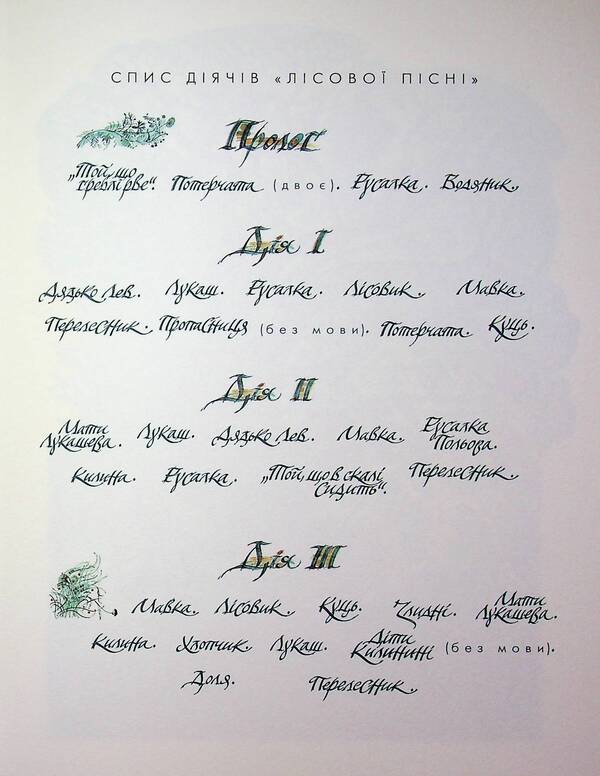 СПИС ДІЯЧІВ «ЛІСОВОЇ ПІСНІ»
Пролог
„Той, що греблі рве“. Потерчата (двоє). Русалка. Водяник.
Дія I
Дядько Лев. Лукаш. Русалка. Лісовик. Мавка.
Перелесник. Пропасниця (без мови). Потерчата. Куць.
Дія II
Мати Лукашева. Лукаш. Дядько Лев. Мавка. Русалка Польова.
Килина. Русалка. „Той, що в скалі сидить“. Перелесник.
Дія III
Мавка. Лісовик. Куць. Злидні. Мати Лукашева.
Килина. Хлопчик. Лукаш. Діти Килинині (без мови).
Доля. Перелесник.